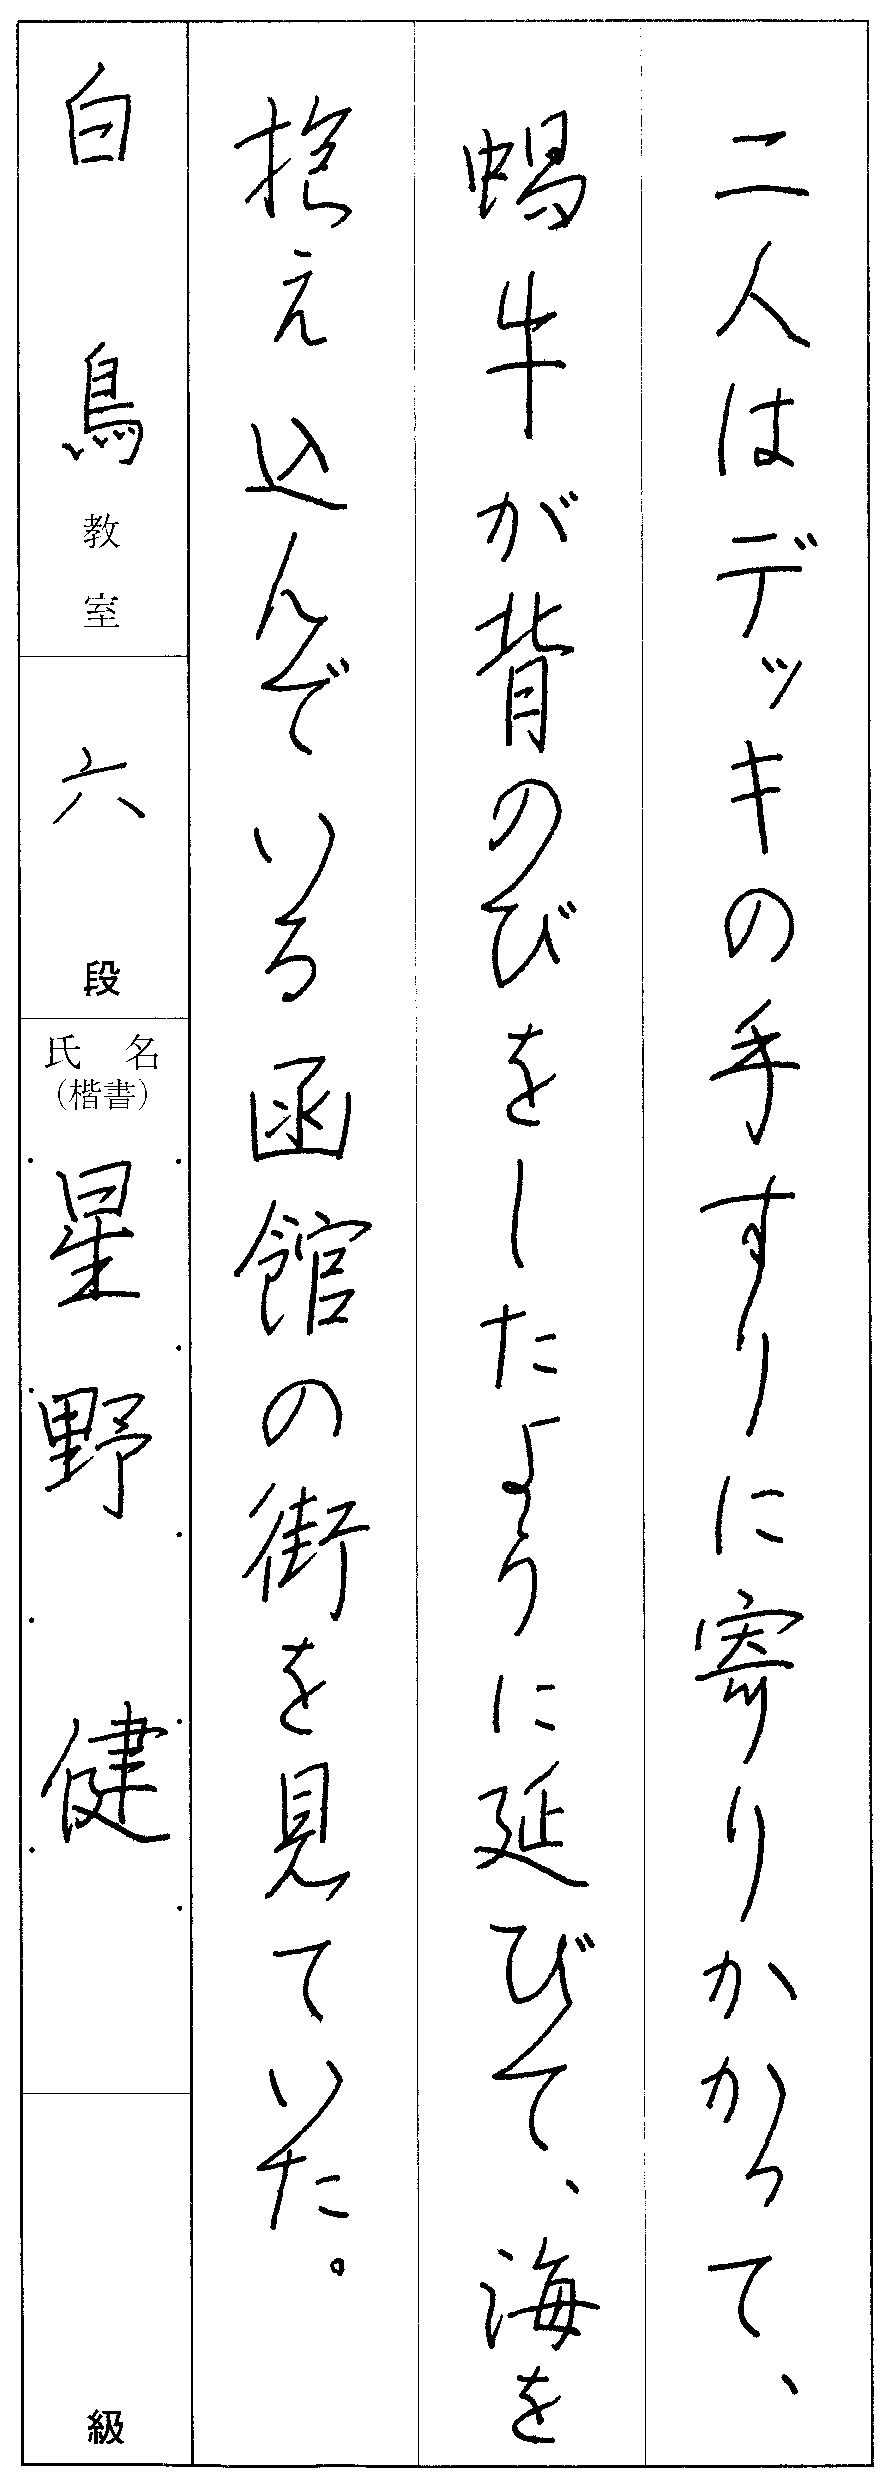 二人はデッキの手すりに寄りかかって、
蝸牛が背のびをしたように延びて、海を
抱え込んでいる函館の街を見ていた。
白鳥教室
六段
氏名
(楷書)
星野健
級